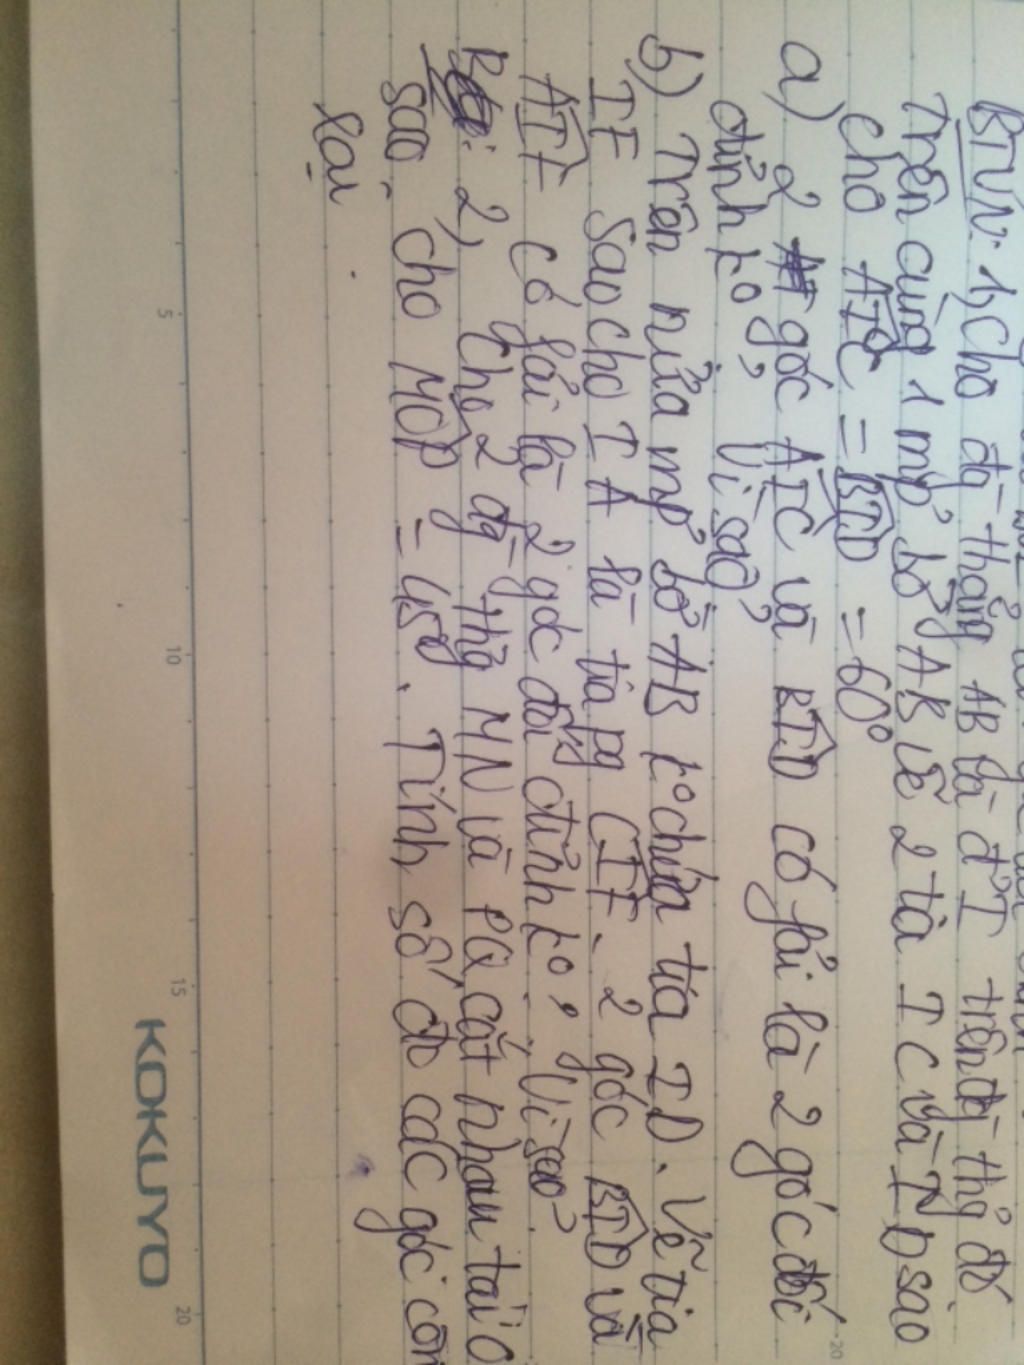 BTVN. 1, Cho đg thẳng AB và đ' I trên đg thg đó
Trên cùng 1 mp' bờ AB vẽ 2 tia IC và ID sao
cho AIC = BID = 60°
a) 2 góc AIC và BID có fải là 2 góc đối
đỉnh k°, vì sao?
b) Trên nửa mp' bờ AB k° chứa tia ID. Vẽ tia
IF sao cho IA là tia pg CIF. 2 góc BID và
AIF có fải là 2 góc đối đỉnh k°, vì sao?
2, Cho 2 đg thg MN và PQ cắt nhau tại O
sao cho MOP = 45°. Tính số đo các góc còn
lại
5
10
15
20
20
KOKUYO